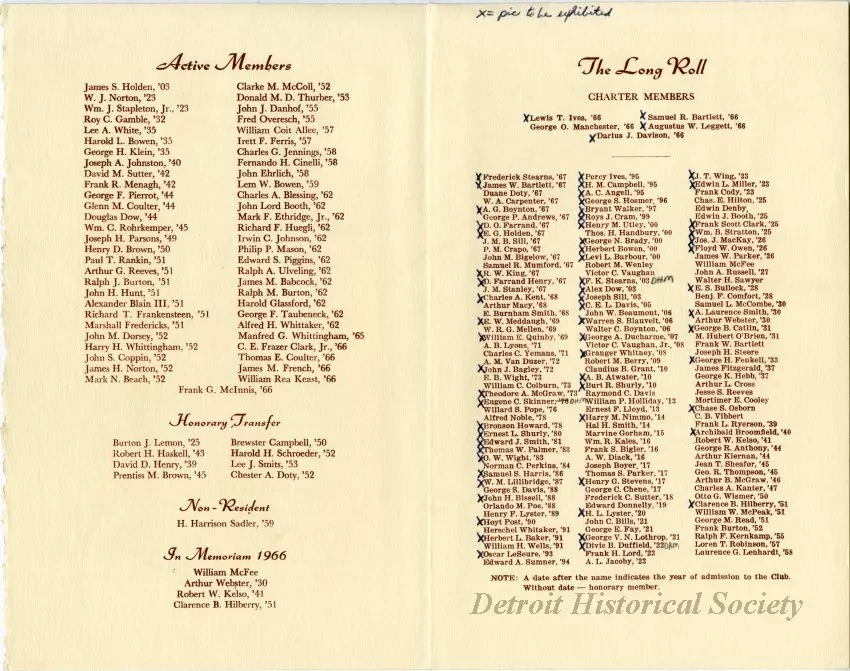 Active Members
James S. Holden, '03
W. J. Norton, '23
Wm. J. Stapleton, Jr., '23
Roy C. Gamble, '32
Lee A. White, '35
Harold L. Bowen, '35
George H. Klein, '35
Joseph A. Johnston, '40
David M. Sutter, '42
Frank R. Menagh, '42
George F. Pierrot, '44
Glenn M. Coulter, '44
Douglas Dow, '44
Wm. C. Rohrkemper, '45
Joseph H. Parsons, '49
Henry D. Brown, '50
Paul T. Rankin, '51
Arthur G. Reeves, '51
Ralph J. Burton, '51
John H. Hunt, '51
Alexander Blain III, '51
Richard T. Frankensteen, '51
Marshall Fredericks, '51
John M. Dorsey, '52
Harry H. Whittingham, '52
John S. Coppin, '52
James H. Norton, '52
Mark N. Beach, '52
Clarke M. McColl, '52
Donald M. D. Thurber, '53
John J. Danhof, '55
Fred Overesch, '55
William Coit Allee, '57
Irett F. Ferris, '57
Charles G. Jennings, '58
Fernando H. Cinelli, '58
John Ehrlich, '58
Lem W. Bowen, '59
Charles A. Blessing, '62
John Lord Booth, '62
Mark F. Ethridge, Jr., '62
Richard F. Huegli, '62
Irwin C. Johnson, '62
Philip P. Mason, '62
Edward S. Piggins, '62
Ralph A. Ulveling, '62
James M. Babcock, '62
Ralph M. Burton, '62
Harold Glassford, '62
George F. Taubeneck, '62
Alfred H. Whittaker, '62
Manfred G. Whittingham, '65
C. E. Frazer Clark, Jr., '66
Thomas E. Coulter, '66
James M. French, '66
William Rea Keast, '66
Frank G. McInnis, '66
Honorary Transfer
Burton J. Lemon, '25
Robert H. Haskell, '43
David D. Henry, '39
Prentiss M. Brown, '45
Brewster Campbell, '50
Harold H. Schroeder, '52
Lee J. Smits, '53
Chester A. Doty, '52
Non-Resident
H. Harrison Sadler, '59
In Memoriam 1966
William McFee
Arthur Webster, '30
Robert W. Kelso, '41
Clarence B. Hilberry, '51
X = pic to be exhibited
The Long Roll
CHARTER MEMBERS
X Lewis T. Ives, '66 X Samuel R. Bartlett, '66
George O. Manchester, '66 X Augustus W. Leggett, '66
X Darius J. Davison, '66
X Frederick Stearns, '67
X James W. Bartlett, '67
Duane Doty, '67
W. A. Carpenter, '67
X A. G. Boynton, '67
George P. Andrews, '67
X D. O. Farrand, '67
X E. G. Holden, '67
J. M. B. Sill, '67
P. M. Crapo, '67
John M. Bigelow, '67
Samuel R. Mumford, '67
X R. W. King, '67
X D. Farrand Henry, '67
J. M. Stanley, '67
X Charles A. Kent, '68
Arthur Macy, '68
E. Burnham Smith, '68
X E. W. Meddaugh, '69
W. R. G. Mellen, '69
X William E. Quinby, '69
A. B. Lyons, '71
Charles C. Yemans, '71
A. M. Van Duzer, '72
X John J. Bagley, '72
E. B. Wight, '73
William C. Colburn, '73
X Theodore A. McGraw, '73
X Eugene C. Skinner, '75 DHM
Willard S. Pope, '76
Alfred Noble, '78
X Bronson Howard, '78
X Ernest L. Shurly, '80
X Edward J. Smith, '81
X Thomas W. Palmer, '82
X O. W. Wight, '83
Norman C. Perkins, '84
X Samuel S. Harris, '86
X W. M. Lillibridge, '87
George S. Davis, '88
X John H. Bissell, '88
Orlando M. Poe, '88
Henry F. Lyster, '89
X Hoyt Post, '90
Herschel Whitaker, '91
X Herbert L. Baker, '91
William H. Wells, '91
X Oscar LeSeure, '93
Edward A. Sumner, '94
X Percy Ives, '95
X H. M. Campbell, '95
X A. C. Angell, '95
X George S. Hosmer, '96
X Bryant Walker, '97
X Roys J. Cram, '99
X Henry M. Utley, '00
Thos. H. Handbury, '00
X George N. Brady, '00
X Herbert Bowen, '00
X Levi L. Barbour, '00
Robert M. Wenley
Victor C. Vaughan
X F. K. Stearns, '03 DHM
X Alex Dow, '03
X Joseph Sill, '03
X C. E. L. Davis, '05
John W. Beaumont, '06
X Warren S. Blauvelt, '06
Walter C. Boynton, '06
X George A. Ducharme, '07
Victor C. Vaughan, Jr., '08
X Granger Whitney, '08
Robert M. Berry, '09
Claudius B. Grant, '10
X A. B. Atwater, '10
X Burt R. Shurly, '10
Raymond C. Davis
William P. Holliday, '13
Ernest F. Lloyd, '13
X Harry M. Nimmo, '14
Hal H. Smith, '14
Marvine Gorham, '15
Wm. R. Kales, '16
Frank S. Bigler, '16
A. W. Diack, '16
Joseph Boyer, '17
Thomas S. Parker, '17
X Henry G. Stevens, '17
George C. Chene, '17
Frederick C. Sutter, '18
Edward Donnelly, '19
X H. L. Lyster, '20
John C. Bills, '21
George E. Fay, '21
X George V. N. Lothrop, '21
X Divie B. Duffield, '22 DHM
Frank H. Lord, '23
A. L. Jacoby, '23
X J. T. Wing, '23
X Edwin L. Miller, '23
Frank Cody, '23
Chas. E. Hilton, '25
Edwin Denby,
Edwin J. Booth, '25
X Frank Scott Clark, '25
X Wm. B. Stratton, '25
X Jos. J. MacKay, '26
X Floyd W. Owen, '26
James W. Parker, '26
William McFee
John A. Russell, '27
Walter H. Sawyer
X E. S. Bullock, '28
Benj. F. Comfort, '28
Samuel L. McCombe, '30
X A. Laurence Smith, '30
Arthur Webster, '30
X George B. Catlin, '31
M. Hubert O'Brien, '31
Frank W. Bartlett
Joseph H. Steere
X George H. Fenkell, '33
James Fitzgerald, '37
George K. Hebb, '37
Arthur L. Cross
Jesse S. Reeves
Mortimer E. Cooley
X Chase S. Osborn
C. B. Vibbert
Frank L. Ryerson, '39
X Archibald Broomfield, '40
Robert W. Kelso, '41
George R. Anthony, '44
Arthur Kiernan, '44
Jean T. Sheafor, '45
Geo. R. Thompson, '45
Arthur B. McGraw, '46
Charles A. Kanter, '47
Otto G. Wismer, '50
X Clarence B. Hilberry, '51
William W. McPeak, '51
George M. Read, '51
Frank Burton, '52
Ralph F. Kernkamp, '55
Loren T. Robinson, '57
Laurence G. Lenhardt, '58
NOTE: A date after the name indicates the year of admission to the Club.
Without date — honorary member.
Detroit Historical Society